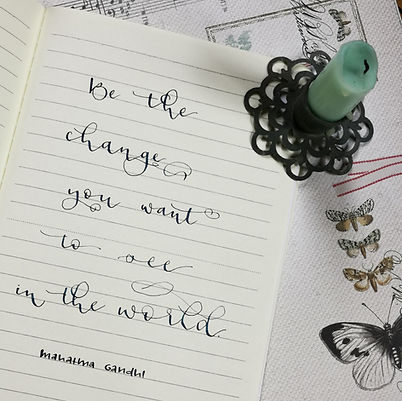 Be the
change
you want
to see
in the world.
Mahatma Gandhi